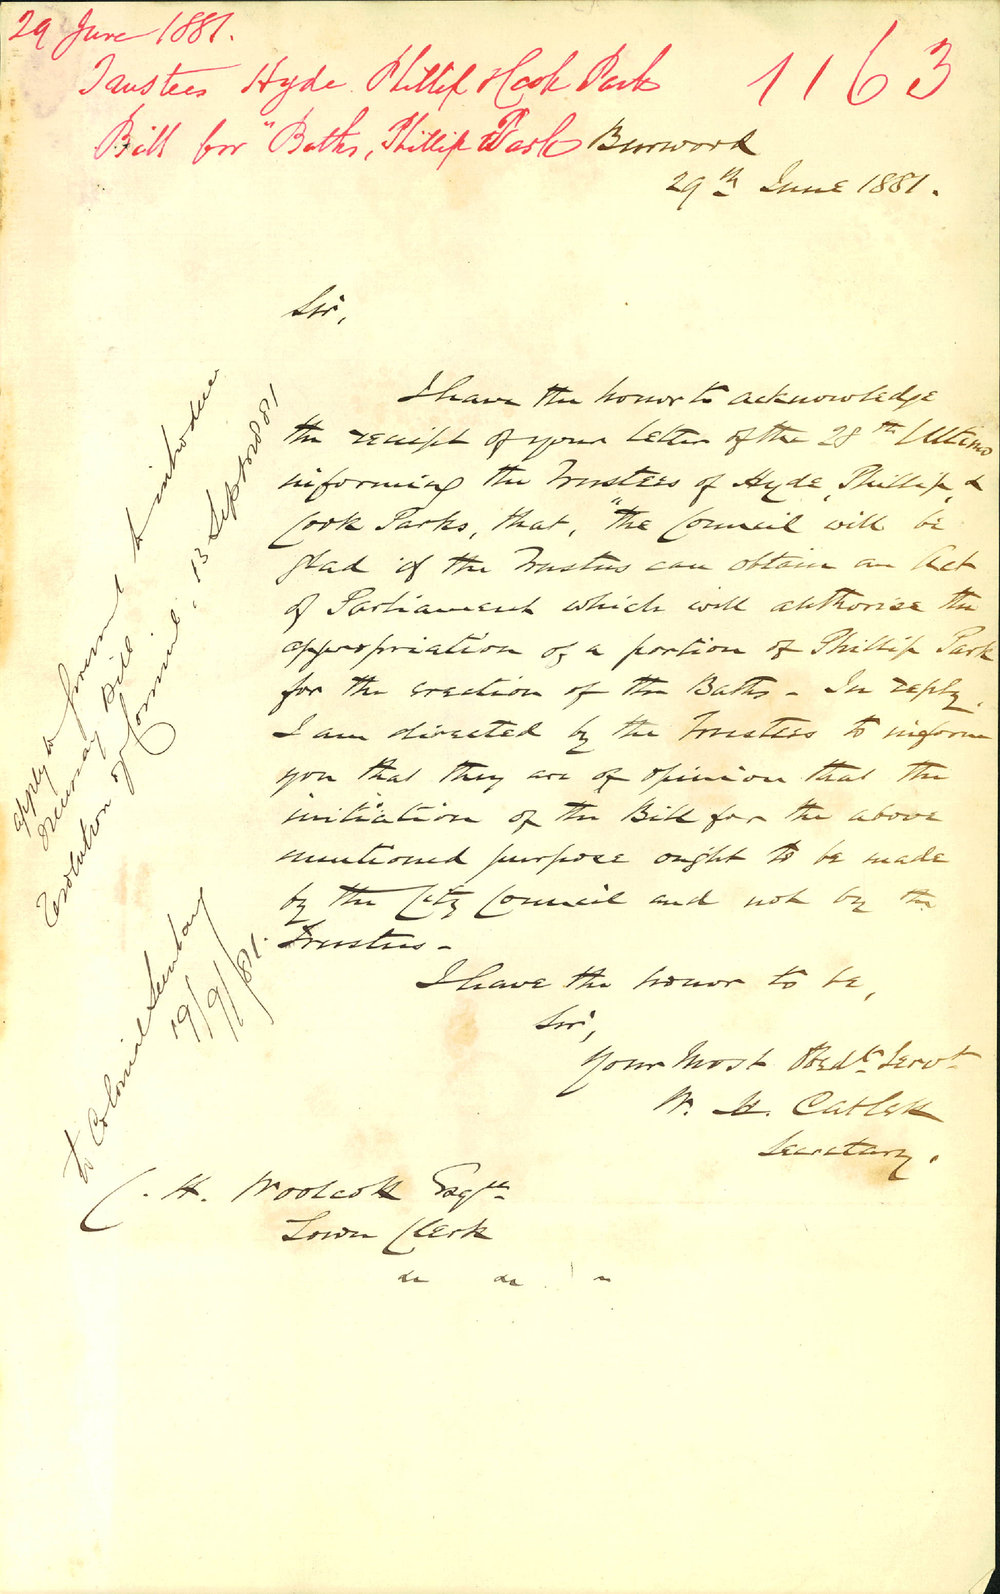 29 June 1881.
Trustees Hyde Phillip & Cook Park
1163
Bill for "Baths, Phillip Park
Burwood
29th June 1881.
Sir,
I have the honor to acknowledge
the receipt of your letter of the 28th Ultimo
informing the Trustees of Hyde, Phillip, &
Cook Parks, that, "the Council will be
glad if the Trustees can obtain an Act
of Parliament which will authorise the
appropriation of a portion of Phillip Park
for the erection of the Baths - In reply,
I am directed by the Trustees to inform
you that they are of opinion that the
initiation of the Bill for the above
mentioned purpose ought to be made
by the City Council and not by the
Trustees -
I have the honor to be,
Sir,
Your Most Obedt. Servt
W. H. Catlett
Secretary.
C. H. Woolcott Esqre
Town Clerk
apply to Governmt to introduce
necessary Bill
resolution of Council, 13 Septr 1881
to Colonial Secretary
19/9/81.